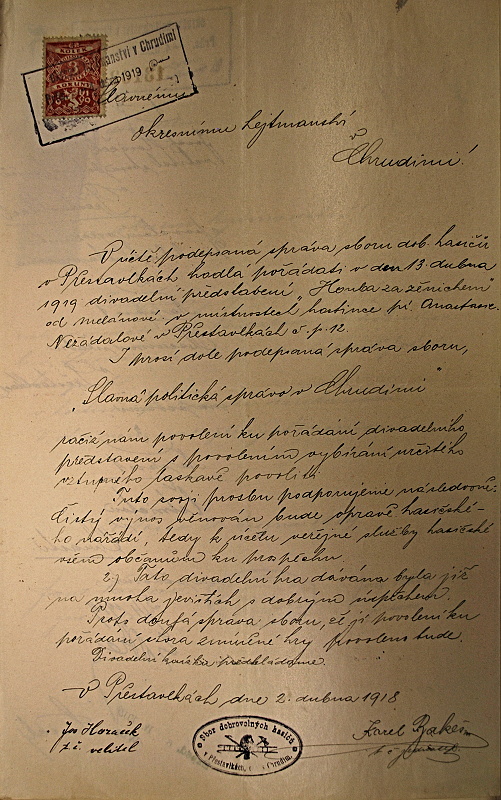 ČR
KOLEK
3
KORUNY
hejtmanství v Chrudimi
1919
Slavnému
okresnímu hejtmanství
v
Chrudimi!
V úctě podepsaná správa sboru dob. hasičů
v Přestavlkách hodlá pořádati v den 13. dubna
1919 divadelní představení „Honba za ženichem"
od Melánové v místnostech hostince pí. Anastasie
Nezádalové v Přestavlkách č. p. 12.
I prosí dole podepsaná správa sboru,
„Slavná politická správo v Chrudimi"
račiž nám povolení ku pořádání divadelního
představení s povolením vybírání určitého
vstupného laskavě povoliti
Tuto svoji prosbu podporujeme následovně:
Čistý výnos věnován bude opravě hasičské-
ho nářadí, tedy k účelu veřejné služby hasičské
všem občanům ku prospěchu.
2.) Tato divadelní hra dávána byla již
na mnoha jevištích s dobrým úspěchem.
Proto doufá správa sboru, že jí povolení ku
pořádání shora zmíněné hry povoleno bude.
Divadelní knížka předkládáme.
V Přestavlkách dne 2. dubna 1918
Jos Horáček
t. č. velitel
Sbor dobrovolných hasičů
v Přestavlkách, Chrudim.
Karel
t. č.